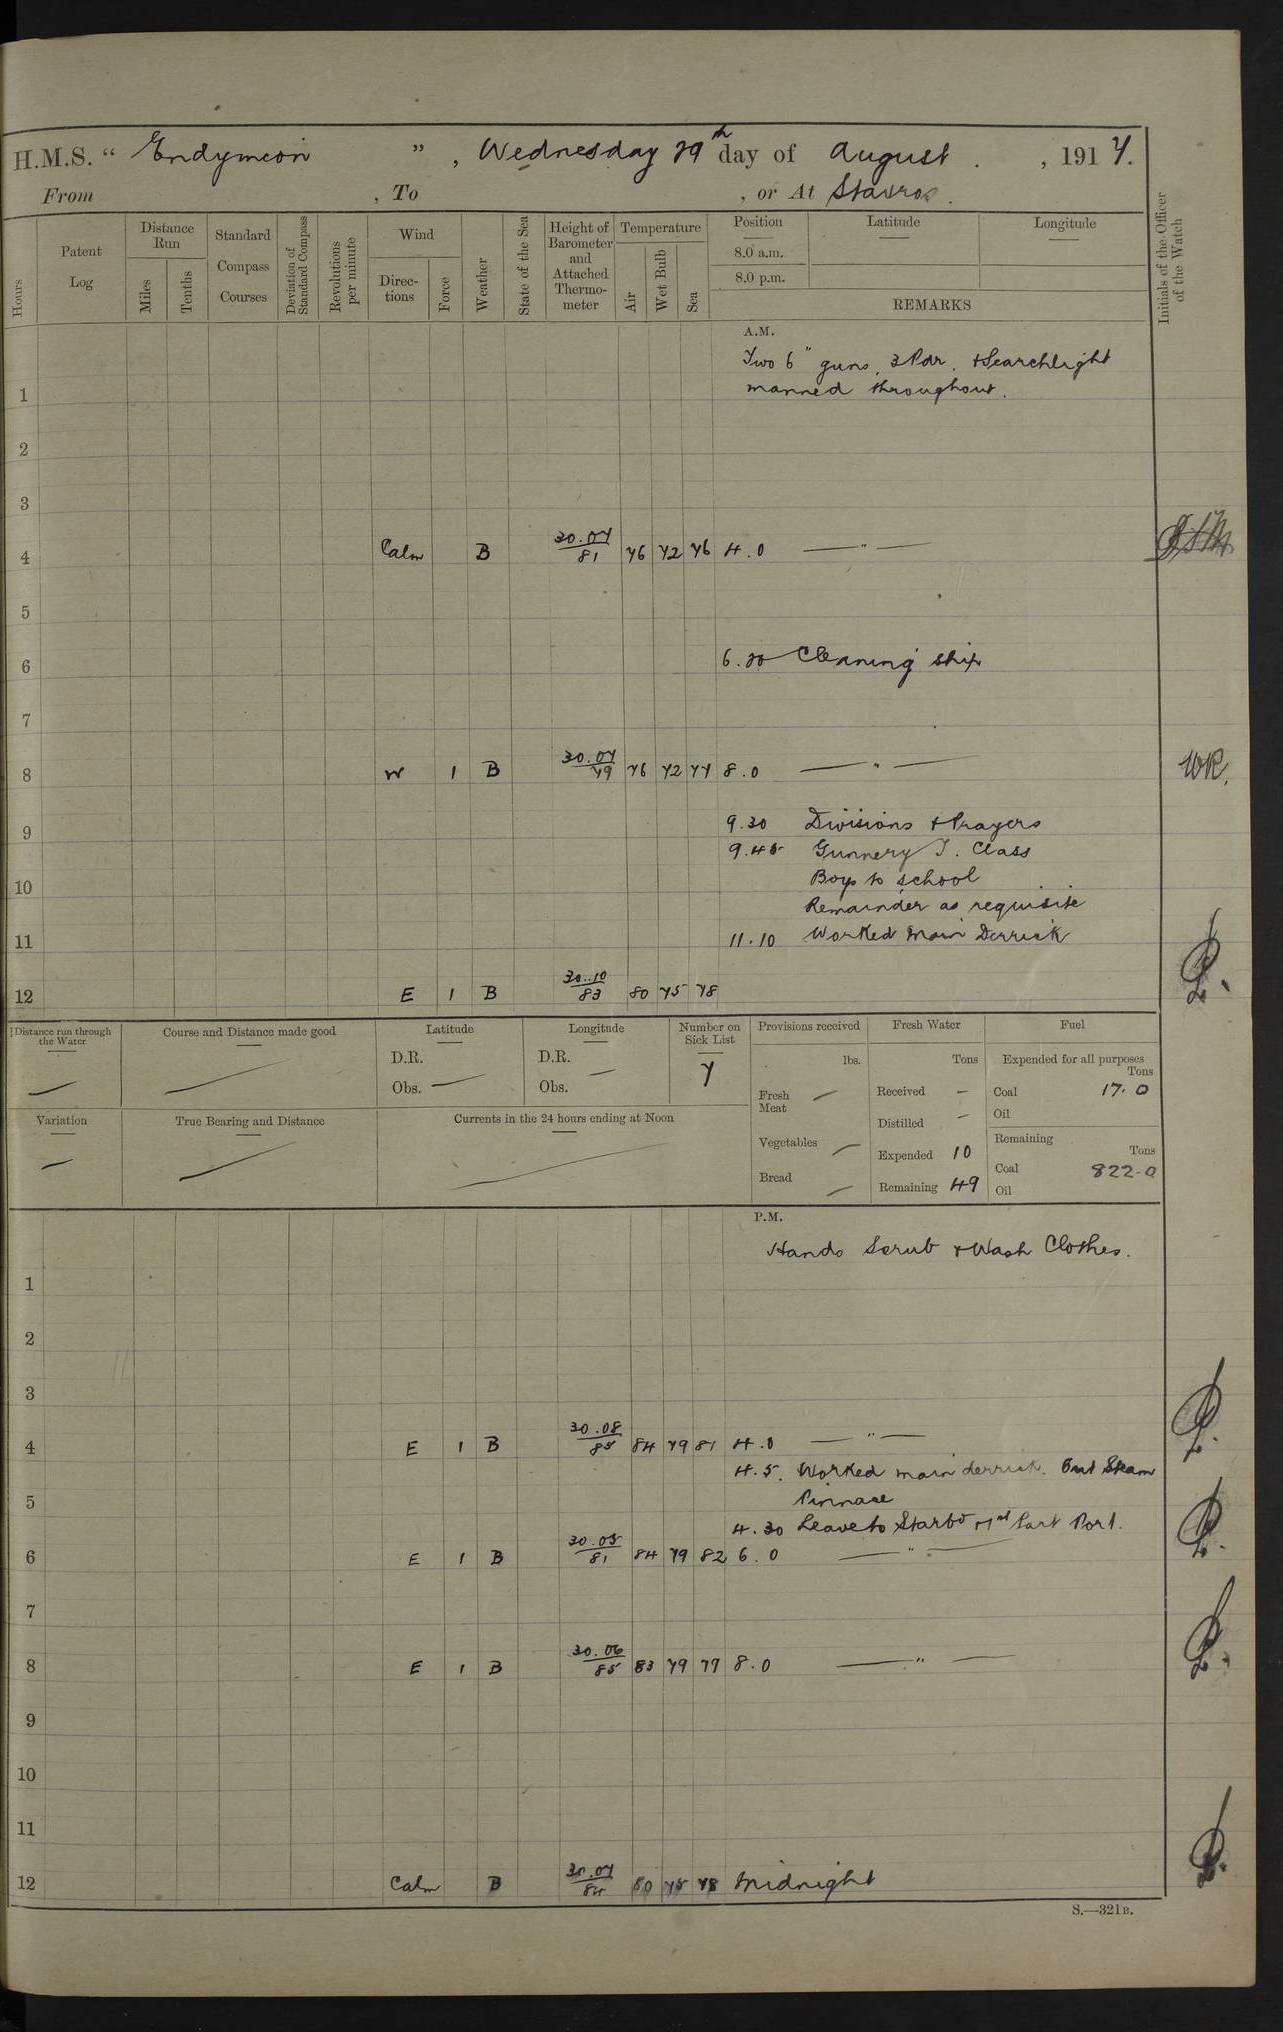 H.M.S. “ Endymion ” , Wednesday 29th day of August . , 1917.
From , To , or At Stavros .
Hours
Patent Log
Distance Run
Miles
Tenths
Standard Compass Courses
Deviation of Standard Compass
Revolutions per minute
Wind
Direc-tions
Force
Weather
State of the Sea
Height of Barometer and Attached Thermo-meter
Temperature
Air
Wet Bulb
Sea
Position Latitude Longitude
8.0 a.m.
8.0 p.m.
REMARKS
Initials of the Officer of the Watch
A.M.
Two 6" guns, 3 Pdr. + Searchlight
1 manned throughout.
2
3
4 Calm B 30.07/81 76 72 76 4.0 — " —
5
6 6.30 Cleaning ship
7
8 W 1 B 30.07/79 76 72 77 8.0 — " — WR.
9.30 Divisions + Prayers
9
9.45 Gunnery T. Class
Boys to school
10
Remainder as requisite
11 11.10 Worked Main Derrick
12 E 1 B 30.10/83 80 75 78
Distance run through the Water
Course and Distance made good
Latitude
D.R.
Obs. —
Longitude
D.R. —
Obs.
Number on Sick List
7
Provisions received
lbs.
Fresh Meat —
Vegetables —
Bread —
Fresh Water
Tons
Received —
Distilled —
Expended 10
Remaining 49
Fuel
Expended for all purposes
Tons
Coal 17.0
Oil
Remaining
Tons
Coal 822.0
Oil
Variation
True Bearing and Distance
Currents in the 24 hours ending at Noon
P.M.
Hands Scrub + Wash Clothes.
1
2
3
4 E 1 B 30.08/85 84 79 81 4.0 — " —
4.5. Worked main derrick. Out Steam
5 Pinnace
4.30 Leave to Starbd + 1st Part Port.
6 E 1 B 30.05/81 84 79 82 6.0 — " —
7
8 E 1 B 30.06/85 83 79 77 8.0 — " —
9
10
11
12 Calm B 30.07/84 80 75 78 Midnight
S.—321B.